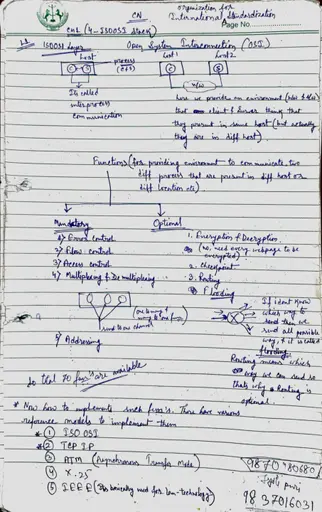 CN
Organization for
International Standardization
Page No.
CH1 (4-ISOOSI Stack)
L1 ISOOSI layers
Open System Interconnection (OSI)
Host
process
(OS)
Host 1
Host 2
n/w
It's called
interprocess
communication
here we provide an enviroment (h/w & s/w)
that client & server think that
they present in same host (but actually
they are in diff host)
Functions (for providing enviroment to communicate two
diff process that are present in diff host or
diff location etc)
Mandatory
Optional
1) Error control
2) Flow control
3) Access control
4) Multiplexing & Demultiplexing
send to one channel
5) Addressing
1. Encryption & Decryption
(no need every webpage to be
encrypted)
2. Checkpoint
3. Routing
Flooding
If ident know
which way to
send then we
send all possible
way, & it is called
flooding
Routing means which
way we can send so
thats why Routing is
optional.
So total 70 func's are available
* Now how to implements such func's. There have various
reference models to implement them
* ① ISO OSI
* ② TCP IP
③ ATM (Asynchronous Transfer Mode)
④ X.25
⑤ IEEE (Its basically used for Lan-technology)
98 37016031